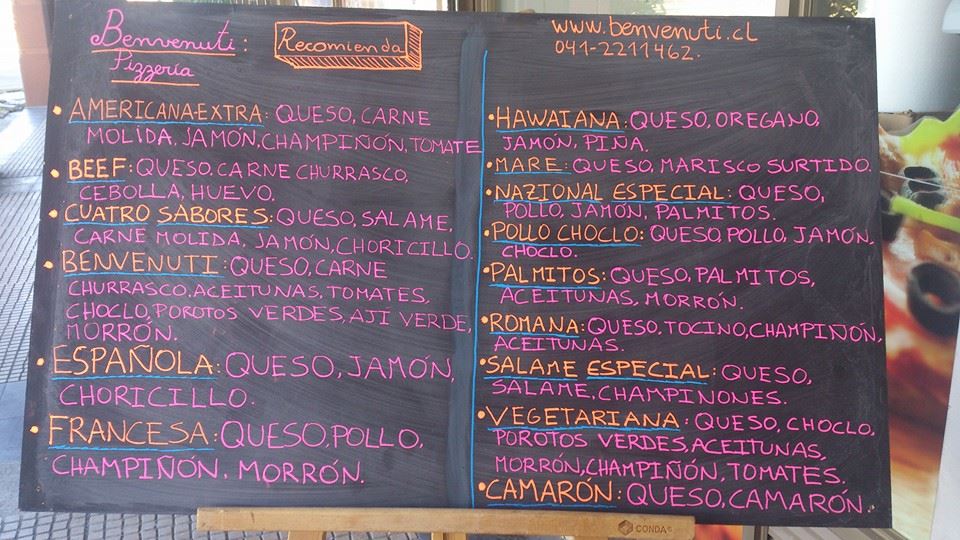 Benvenuti:
Pizzería
Recomienda
• AMERICANA-EXTRA: QUESO, CARNE
MOLIDA, JAMÓN, CHAMPIÑÓN, TOMATE
• BEEF: QUESO, CARNE CHURRASCO,
CEBOLLA, HUEVO.
• CUATRO SABORES: QUESO, SALAME,
CARNE MOLIDA, JAMÓN, CHORICILLO.
• BENVENUTI: QUESO, CARNE
CHURRASCO, ACEITUNAS, TOMATES,
CHOCLO, POROTOS VERDES, AJÍ VERDE,
MORRÓN.
• ESPAÑOLA: QUESO, JAMÓN,
CHORICILLO.
• FRANCESA: QUESO, POLLO,
CHAMPIÑÓN, MORRÓN.
www.benvenuti.cl
041-2211462.
• HAWAIANA: QUESO, OREGANO,
JAMÓN, PIÑA.
• MARE: QUESO, MARISCO SURTIDO.
• NAZIONAL ESPECIAL: QUESO,
POLLO, JAMÓN, PALMITOS.
• POLLO CHOCLO: QUESO, POLLO, JAMÓN,
CHOCLO.
• PALMITOS: QUESO, PALMITOS,
ACEITUNAS, MORRÓN.
• ROMANA: QUESO, TOCINO, CHAMPIÑÓN,
ACEITUNAS.
• SALAME ESPECIAL: QUESO,
SALAME, CHAMPINONES.
• VEGETARIANA: QUESO, CHOCLO,
POROTOS VERDES, ACEITUNAS,
MORRÓN, CHAMPIÑÓN, TOMATES.
• CAMARÓN: QUESO, CAMARÓN.
CONDA